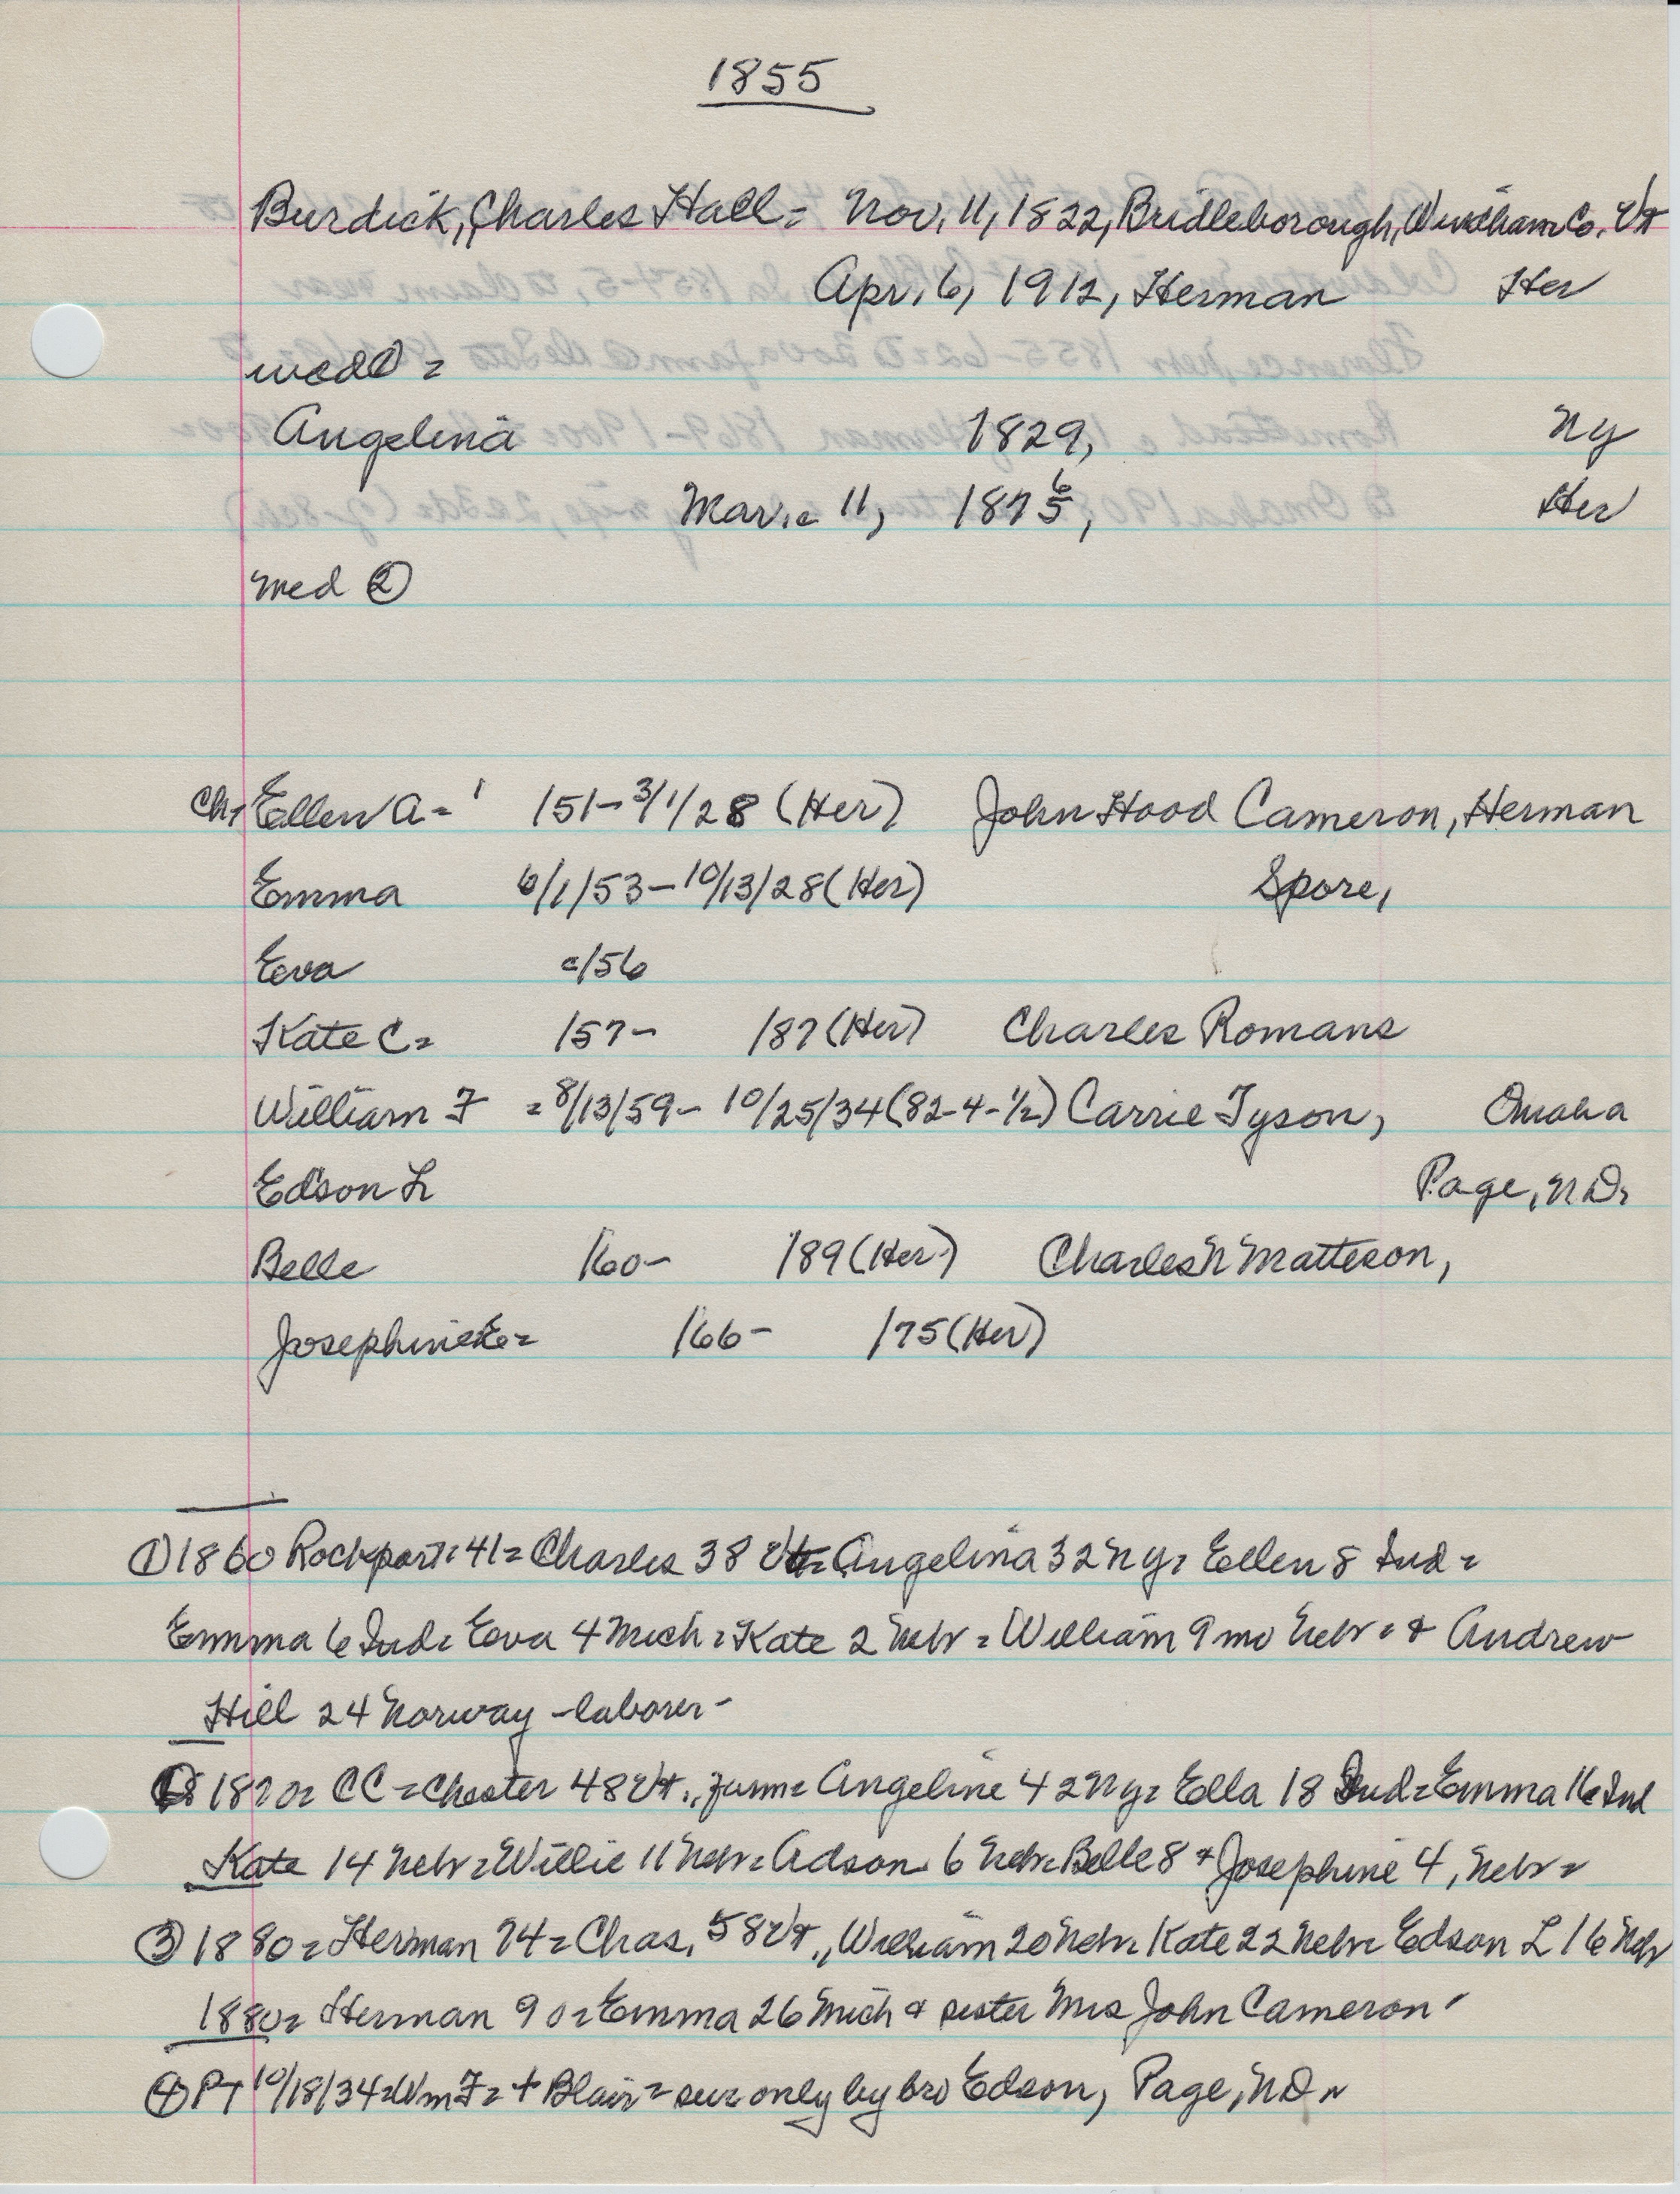 1855
Burdick, Charles Hall = Nov. 11, 1822, Bridleborough, Windham Co. Vt
Apr. 6, 1912, Herman Her
wed ① =
Angelina 1829, NY
Mar. 11, 1875, 6 Her
med ②
Ch, Ellen A = /51 - 3/1/28 (Her) John Hood Cameron, Herman
Emma 6/1/53 - 10/13/28 (Her) Spore,
Eva c/56
Kate C = /57 - /87 (Her) Charles Romans
William F = 8/13/59 - 10/25/34 (82-4-1/2) Carrie Tyson, Omaha
Edson L Page, N D.
Belle /60 - /89 (Her) Charles N Matteson,
Josephine E = /66 - /75 (Her)
① 1860 Rockport: 41 = Charles 38 Vt = Angelina 32 NY = Ellen 8 Ind =
Emma 6 Ind = Eva 4 Mich = Kate 2 Nebr = William 9 mo Nebr = + Andrew
Hill 24 Norway - laborer -
1870 = CC = Chester 48 Vt., farm = Angeline 42 NY = Ella 18 Ind = Emma 16 Ind
Kate 14 Nebr = Willie 11 Nebr = Adson 6 Nebr = Belle 8 + Josephine 4, Nebr =
③ 1880 = Herman 74 = Chas. 58 Vt., William 20 Nebr = Kate 22 Nebr = Edson L 16 Nebr
1880 = Herman 90 = Emma 26 Mich + sister Mrs John Cameron
④ PT 10/18/34 = Wm F = + Blair = sur only by bro Edson, Page, N D